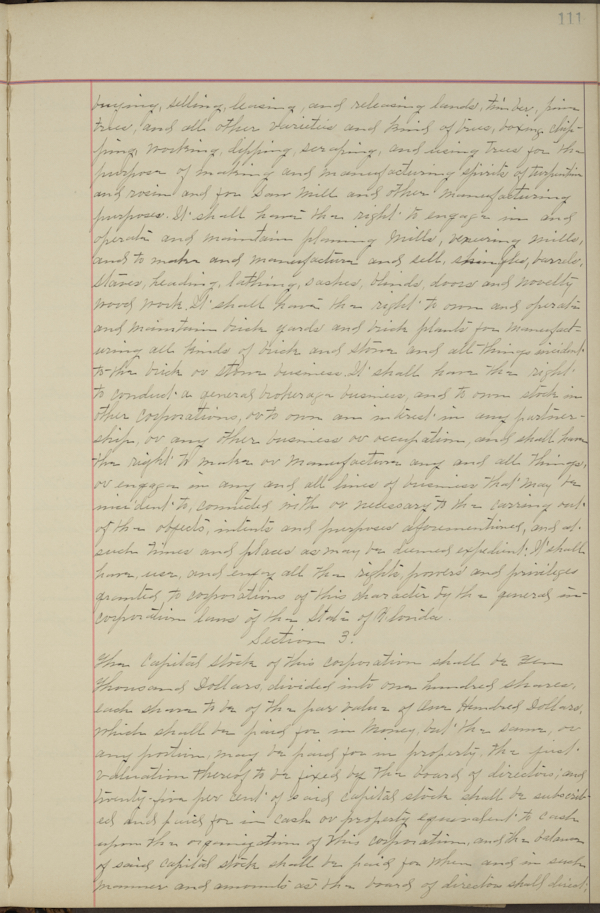 111
buying, selling, leasing, and releasing lands, timber, pine
trees, and all other varieties and kind of trees, boxing, chip-
ping, working, dipping, scraping, and using trees for the
purpose of making and manufacturing spirits of turpentine
and rosin and for saw mill and other manufacturing
purposes. It shall have the right to engage in and
operate and maintain planing mills, veneering mills,
and to make and manufacture and sell, shingles, barrels,
staves, heading, lathing, sashes, blinds, doors and novelty
wood work. It shall have the right to own and operate
and maintain brick yards and brick plants for manufact-
uring all kinds of brick and stone and all things incident
to the brick or stone business. It shall have the right
to conduct a general brokerage business, and to own stock in
other corporations, or to own an interest in any partner-
ship, or any other business or occupation, and shall have
the right to make or manufacture any and all things,
or engage in any and all lines of business that may be
incident to, connected with or necessary to the carrying out
of the objects, intents and purposes aforementioned, and at
such times and places as may be deemed expedient. It shall
have, use, and enjoy all the rights, powers and privileges
granted to corporations of this character by the general in-
corporation laws of the State of Florida.
Section 3.
The Capital Stock of this corporation shall be Ten
Thousand Dollars, divided into one hundred shares,
each share to be of the par value of One Hundred Dollars,
which shall be paid for in money, but the same, or
any portion, may be paid for in property, the just
valuation thereof to be fixed by the board of directors; and
twenty-five per cent of said capital stock shall be subscrib-
ed and paid for in cash or property equivalent to cash
upon the organization of this corporation, and the balance
of said capital stock shall be paid for when and in such
manner and amounts as the board of directors shall direct.